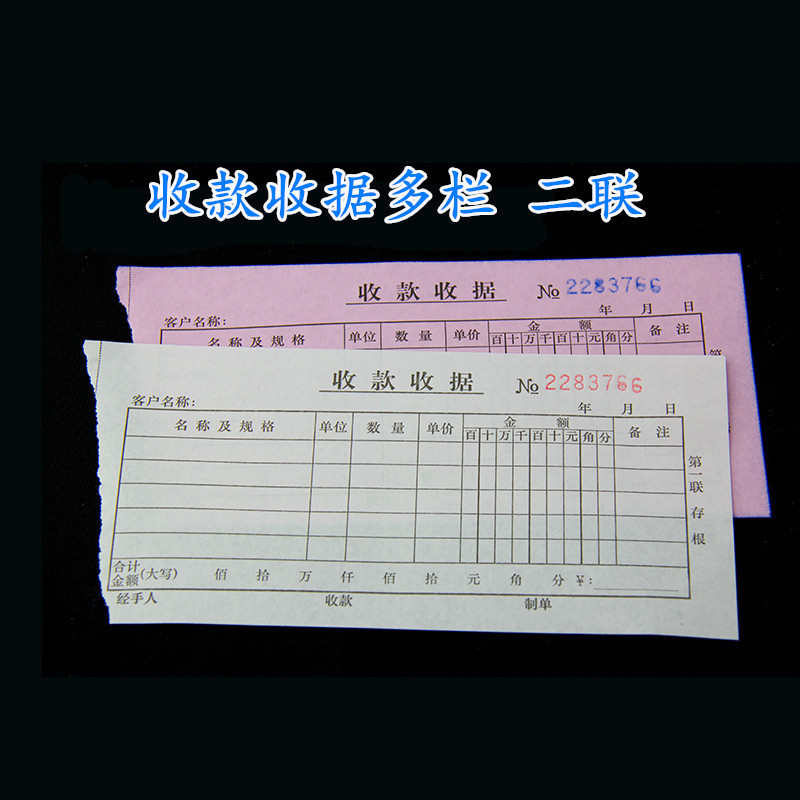 收款收据多栏 二联
收款收据 № 2283766
年 月 日
客户名称：
名称及规格 单位 数量 单价 金额 备注
百 十 万 千 百 十 元 角 分
第
收款收据 № 2283766
客户名称： 年 月 日
名称及规格 单位 数量 单价 金额 备注
百 十 万 千 百 十 元 角 分
第一联 存根
合计金额(大写) 佰 拾 万 仟 佰 拾 元 角 分 ¥：
经手人 收款 制单